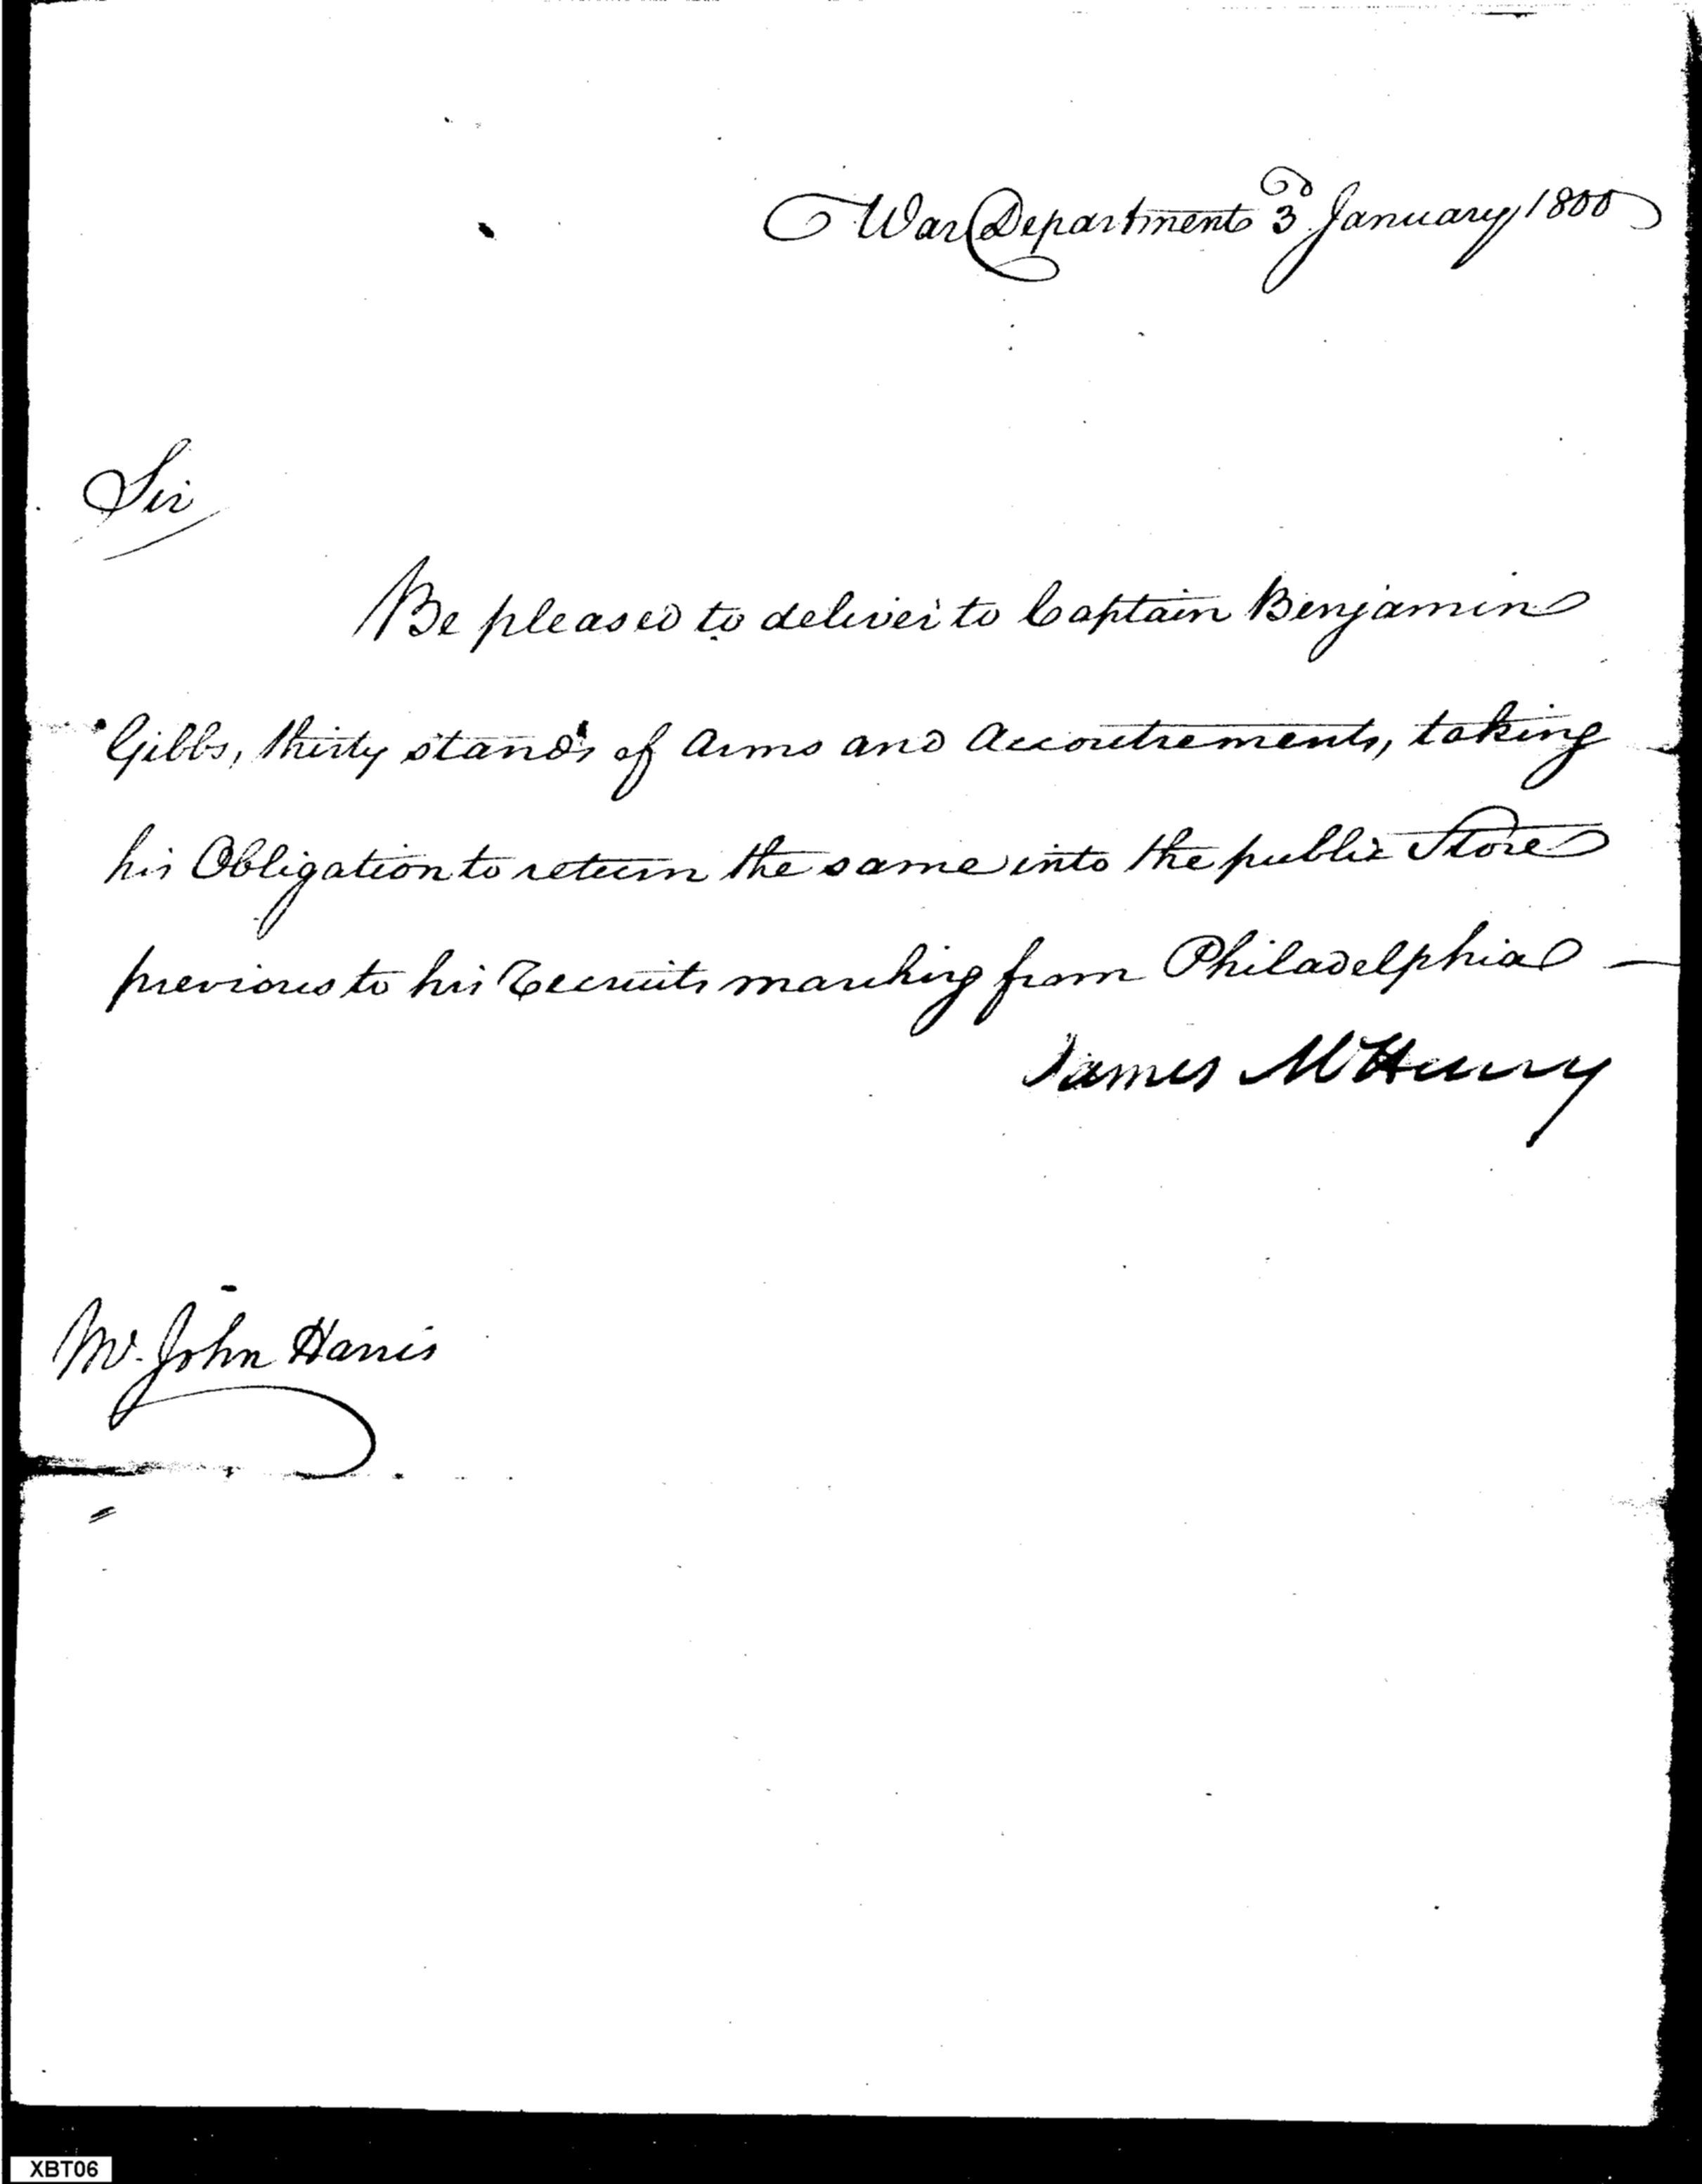 War Department 3d January 1800
Sir
Be pleased to deliver to Captain Benjamin
Gibbs, thirty stands of Arms and Accoutrements, taking
his Obligation to return the same into the public Store
previous to his Recruits marching from Philadelphia —
James McHenry
Mr. John Harris
XBT06